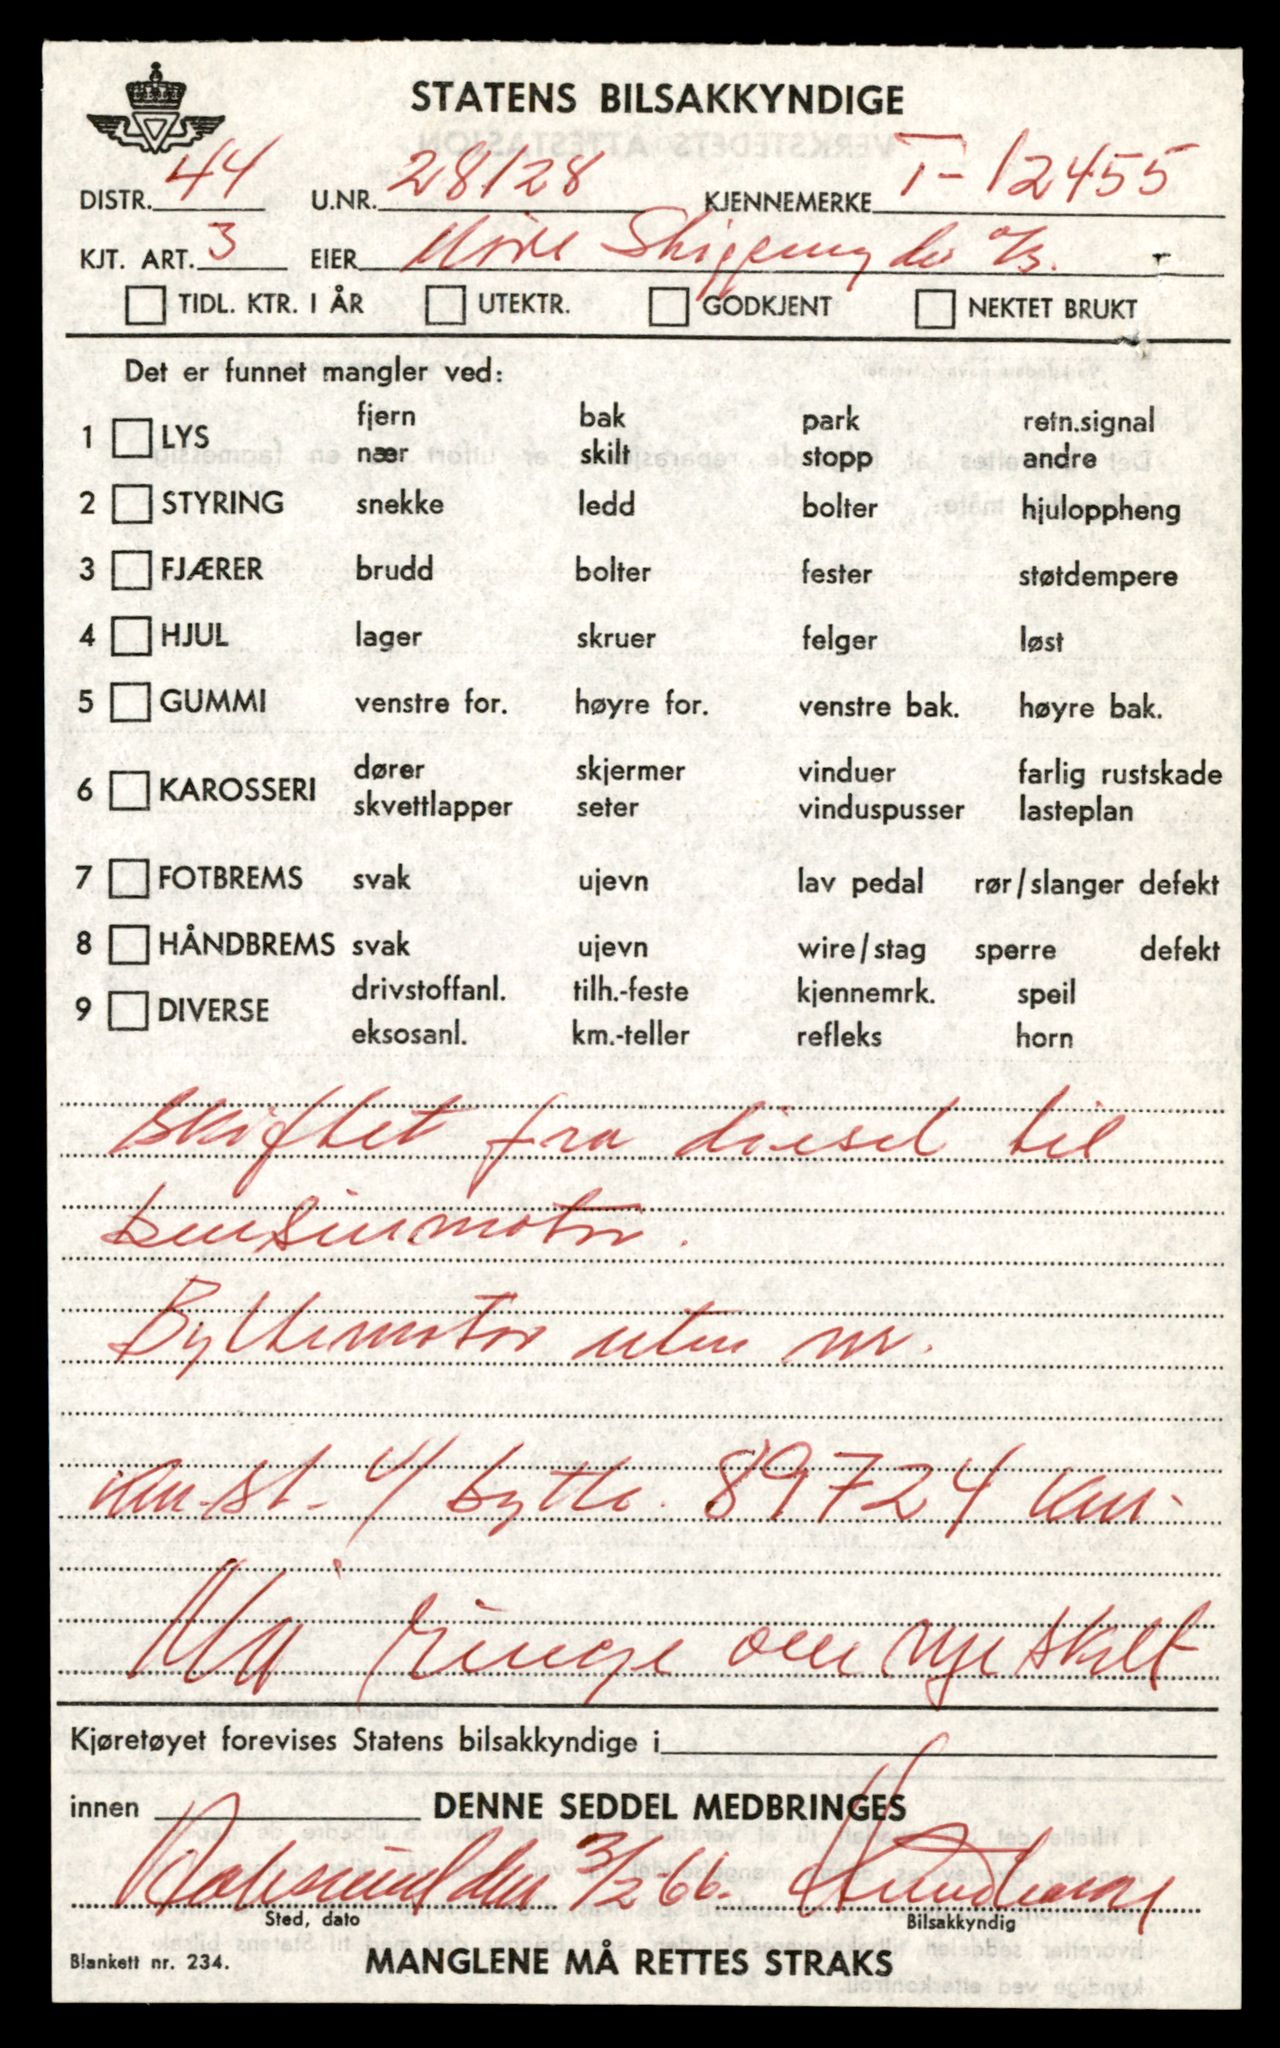 STATENS BILSAKKYNDIGE
DISTR. 44 U.NR. 28128 KJENNEMERKE T-12455
KJT. ART. 3 EIER Møre a/s.
TIDL. KTR. I ÅR UTEKTR. GODKJENT NEKTET BRUKT
Det er funnet mangler ved:
1 LYS fjern bak park retn.signal
nær skilt stopp andre
2 STYRING snekke ledd bolter hjuloppheng
3 FJÆRER brudd bolter fester støtdempere
4 HJUL lager skruer felger løst
5 GUMMI venstre for. høyre for. venstre bak. høyre bak.
6 KAROSSERI dører skjermer vinduer farlig rustskade
skvettlapper seter vinduspusser lasteplan
7 FOTBREMS svak ujevn lav pedal rør/slanger defekt
8 HÅNDBREMS svak ujevn wire/stag sperre defekt
9 DIVERSE drivstoffanl. tilh.-feste kjennemrk. speil
eksosanl. km.-teller refleks horn
Skiftet fra diesel til
bensinmotor.
Byttemotor uten nr.
km.st. v/ bytte. 89724 km.
Må ringe om nye skilt
Kjøretøyet forevises Statens bilsakkyndige i
innen DENNE SEDDEL MEDBRINGES
den 3/2 66.
Sted, dato Bilsakkyndig
Blankett nr. 234. MANGLENE MÅ RETTES STRAKS